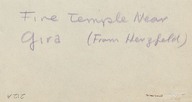 Fire Temple Near
Gira (From Herzfeld)